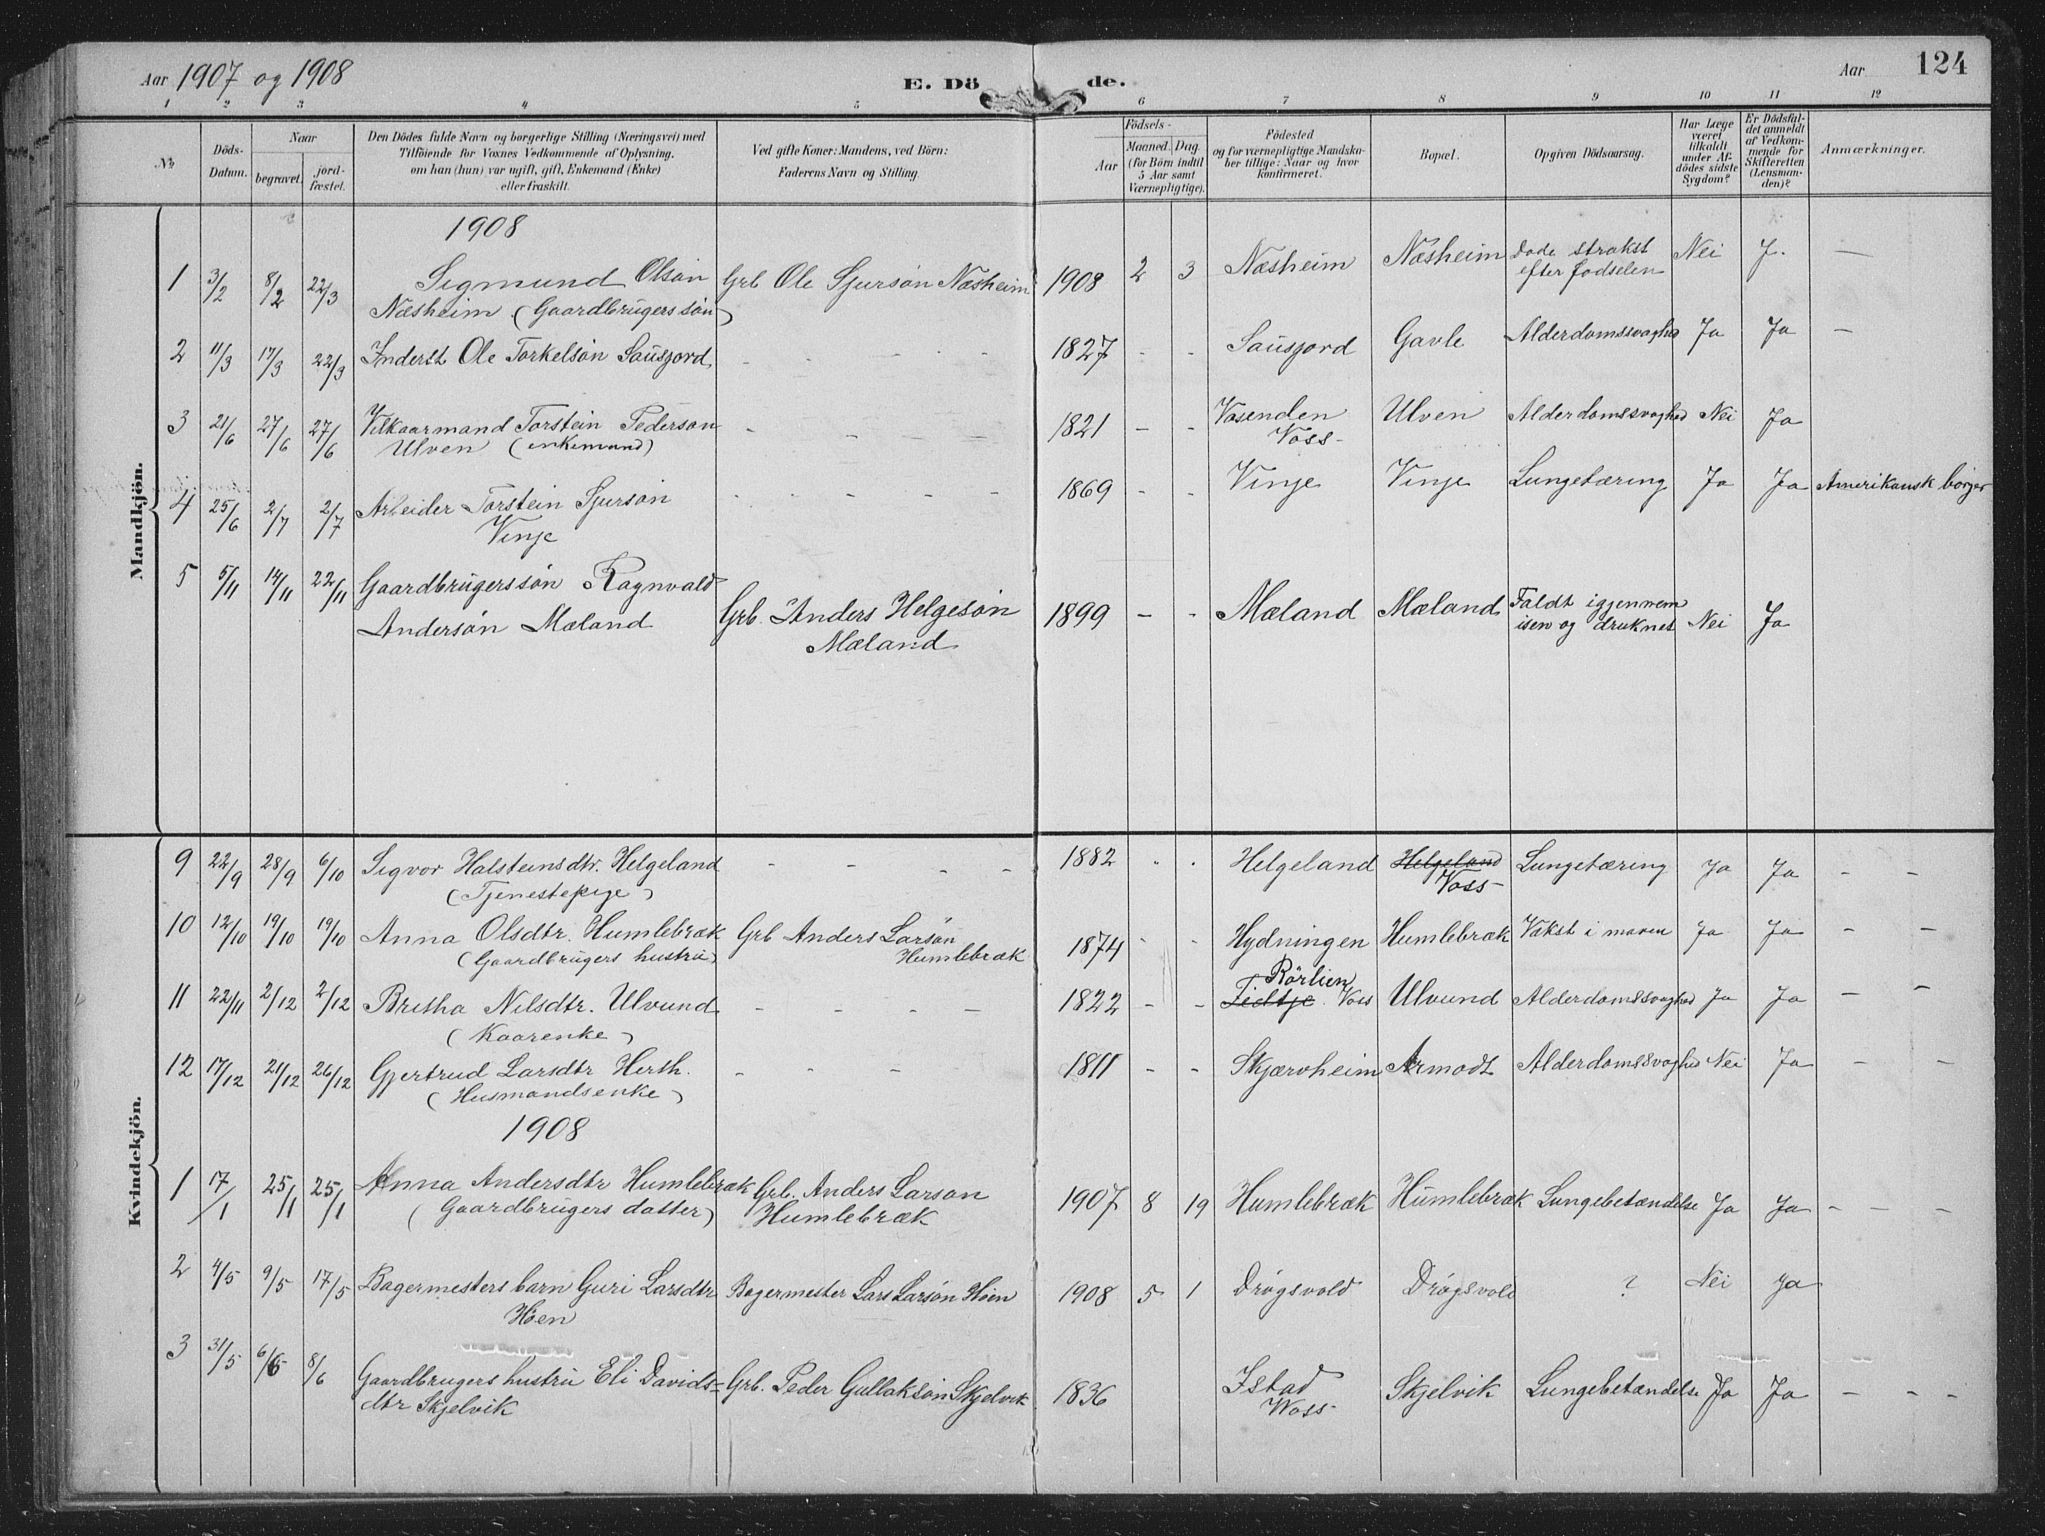 Aar 1907 og 1908
E. Dö de.
Aar
124
1 2 3 4 5 6 7 8 9 10 11 12
No
Döds-
Datum.
Naar
begravet.
jord-
fæstet.
Den Dödes fulde Navn og borgerlige Stilling (Næringsvei) med
Tilföiende for Voxnes Vedkommende af Oplysning,
om han (hun) var ugift, gift, Enkemand (Enke)
eller fraskilt.
Ved gifte Koner: Mandens, ved Börn:
Faderens Navn og Stilling.
Födsels-
Aar
Maaned. Dag.
(for Börn indtil
5 Aar samt
Værnepligtige).
Födested
og for værnepligtige Mandska-
ber tillige: Naar og hvor
konfirmeret.
Bopæl.
Opgiven Dödsaarsag.
Har Læge
været
tilkaldt
under Af-
dödes sidste
Sygdom?
Er Dödsfal-
det anmeldt
af Vedkom-
mende for
Skifteretten
(Lensman-
den)?
Anmærkninger.
Mandkjön.
1908
1 3/2 8/2 22/3 Sigmund Olson Grb Ole Sjurson Næsheim 1908 2 3 Næsheim Næsheim Døde strakst Nei J. —
Næsheim (Gaardbrugers søn) efter fødselen
2 11/3 17/3 22/3 Inderst Ole Torkelsøn Sausjord - - - - 1827 - - Sausjord Gavle Alderdomssvaghed Ja Ja —
3 21/6 27/6 27/6 Vilkaarmand Torstein Pederson - - - - 1821 - - Vasenden Ulven Alderdomssvaghed Nei Ja
Ulven (enkemand) Voss-
4 25/6 2/7 2/7 Arbeider Torstein Sjursøn - - - - - 1869 - - Vinje Vinje Lungetæring Ja Ja Amerikansk borger
Vinje
5 5/11 14/11 22/11 Gaardbrugerssøn Ragnvald Grb. Anders Helgesøn 1899 - - Mæland Mæland Faldt igjennem Nei Ja
Andersøn Mæland Mæland isen og druknet
Kvindekjön.
9 22/9 28/9 6/10 Sigvor Halsteinsdtr. Helgeland - - - - 1882 - - Helgeland Helgeland Lungetæring Ja Ja - -
(Tjenestepige) Voss-
10 12/10 19/10 19/10 Anna Olsdtr. Humlebræk Grb Anders Larsøn 1874 - - Hydningen Humlebræk Vækst i maven Ja Ja - -
(Gaardbrugers hustru) Humlebræk
Rørlien
11 22/11 2/12 2/12 Britha Nilsdtr. Ulvund - - - - 1822 - - Voss Ulvund Alderdomssvaghed Ja Ja - -
(Kaarenke)
12 17/12 21/12 26/12 Gjertrud Larsdtr Herth. - - - 1811 - - Skjærvheim Armodt Alderdomssvaghed Nei Ja - -
(Husmandsenke)
1908
1 17/1 25/1 25/1 Anna Andersdtr Humlebræk Grb. Anders Larson 1907 8 19 Humlebræk Humlebræk Lungebetændelse Ja Ja - - -
(Gaardbrugers datter) Humlebræk
2 4/5 9/5 17/5 Bagermesters barn Guri Larsdtr Bagermester Lars Larsøn Høen 1908 5 1 Drøgsvold Drøgsvold ? Nei Ja
Høen
3 31/5 6/6 8/6 Gaardbrugers hustru Eli Davids- Grb. Peder Gullaksøn Skjelvik 1836 Istad Skjelvik Lungebetændelse Ja Ja - - -
dtr Skjelvik Voss-